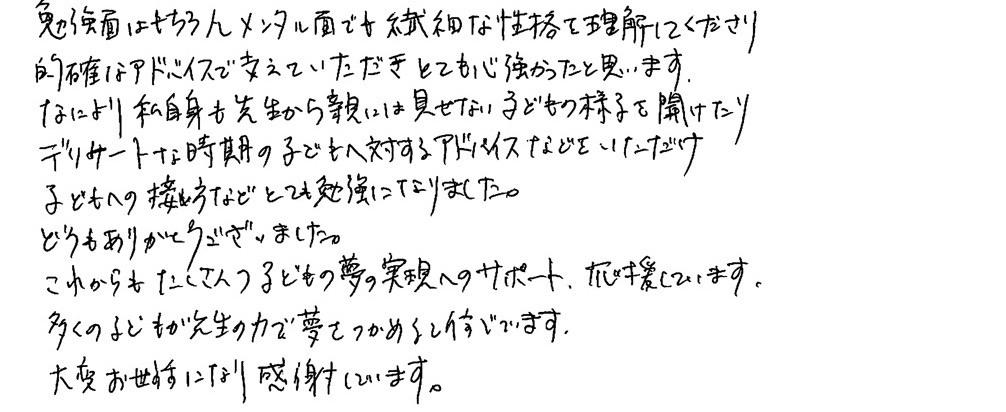 勉強面はもちろんメンタル面でも繊細な性格を理解してくださり
的確なアドバイスで支えていただきとても心強かったと思います。
なにより私自身も先生から親には見せない子どもの様子を聞けたり
デリケートな時期の子どもへ対するアドバイスなどをいただけ
子どもへの接し方などとても勉強になりました。
どうもありがとうございました。
これからもたくさんの子どもの夢の実現へのサポート、応援しています。
多くの子どもが先生の力で夢をつかめると信じています。
大変お世話になり感謝しています。